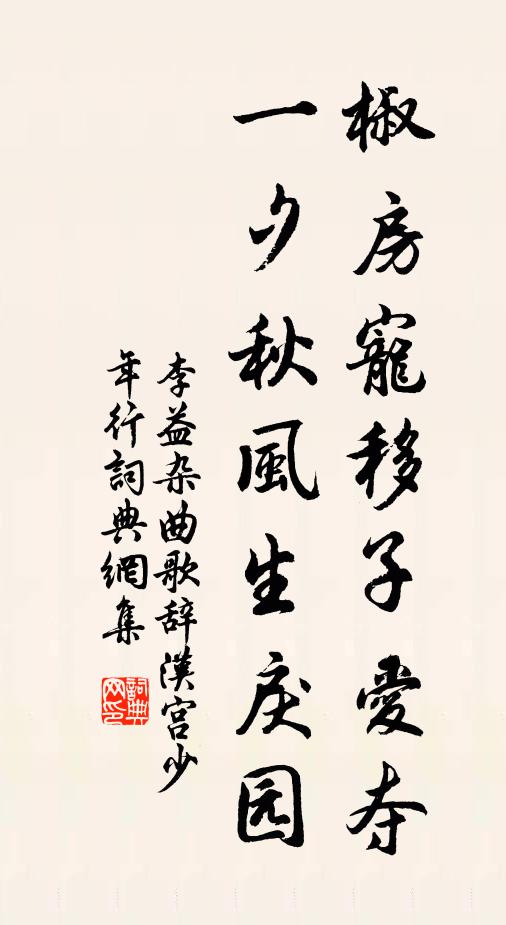 椒房寵移子愛夺
一夕秋風生戾园
李益杂曲歌辞漢宫少
年行詞典網集
詞典网印